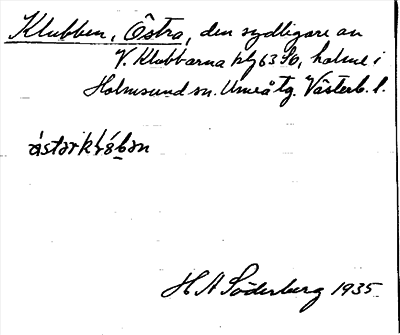 Klubben, Östra, den sydligare av
V. Klubbarna plg 63 So, holme i
Holmsund sn. Umeå tg. Västerb. l.
ástərkl̥óbən
H A Söderberg 1935